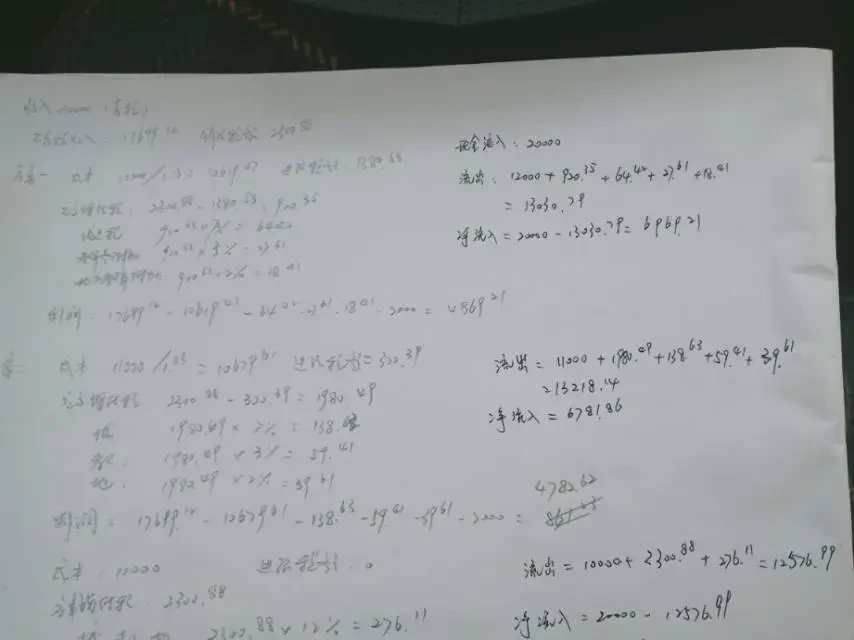 收入 20000 (含税)
不含税收入: 17699.12 销项税额 2300.88
方案一 成本: 12000/1.13 = 10619.47 进项税额: 1380.53
应交增值税: 2300.88 - 1380.53 = 920.35
城建税 920.35 × 7% = 64.42
920.35 × 3% = 27.61
920.35 × 2% = 18.41
利润: 17699.12 - 10619.47 - 64.42 - 27.61 - 18.41 - 2000 = 4969.21
现金流入: 20000
流出: 12000 + 920.35 + 64.42 + 27.61 + 18.41
= 13030.79
净流入 = 20000 - 13030.79 = 6969.21
成本 11000/1.03 = 10679.61 进项税额 = 320.39
应交增值税 2300.88 - 320.39 = 1980.49
城: 1980.49 × 7% = 138.63
教: 1980.49 × 3% = 59.41
地: 1980.49 × 2% = 39.61
利润 = 17699.12 - 10679.61 - 138.63 - 59.41 - 39.61 - 2000 =
4782.62
流出 = 11000 + 1980.49 + 138.63 + 59.41 + 39.61
= 13218.14
净流入 = 6781.86
成本: 10000 进项税额: 0
应交增值税: 2300.88
2300.88 × 12% = 276.11
流出 = 10000 + 2300.88 + 276.11 = 12576.99
净流入 = 20000 - 12576.99